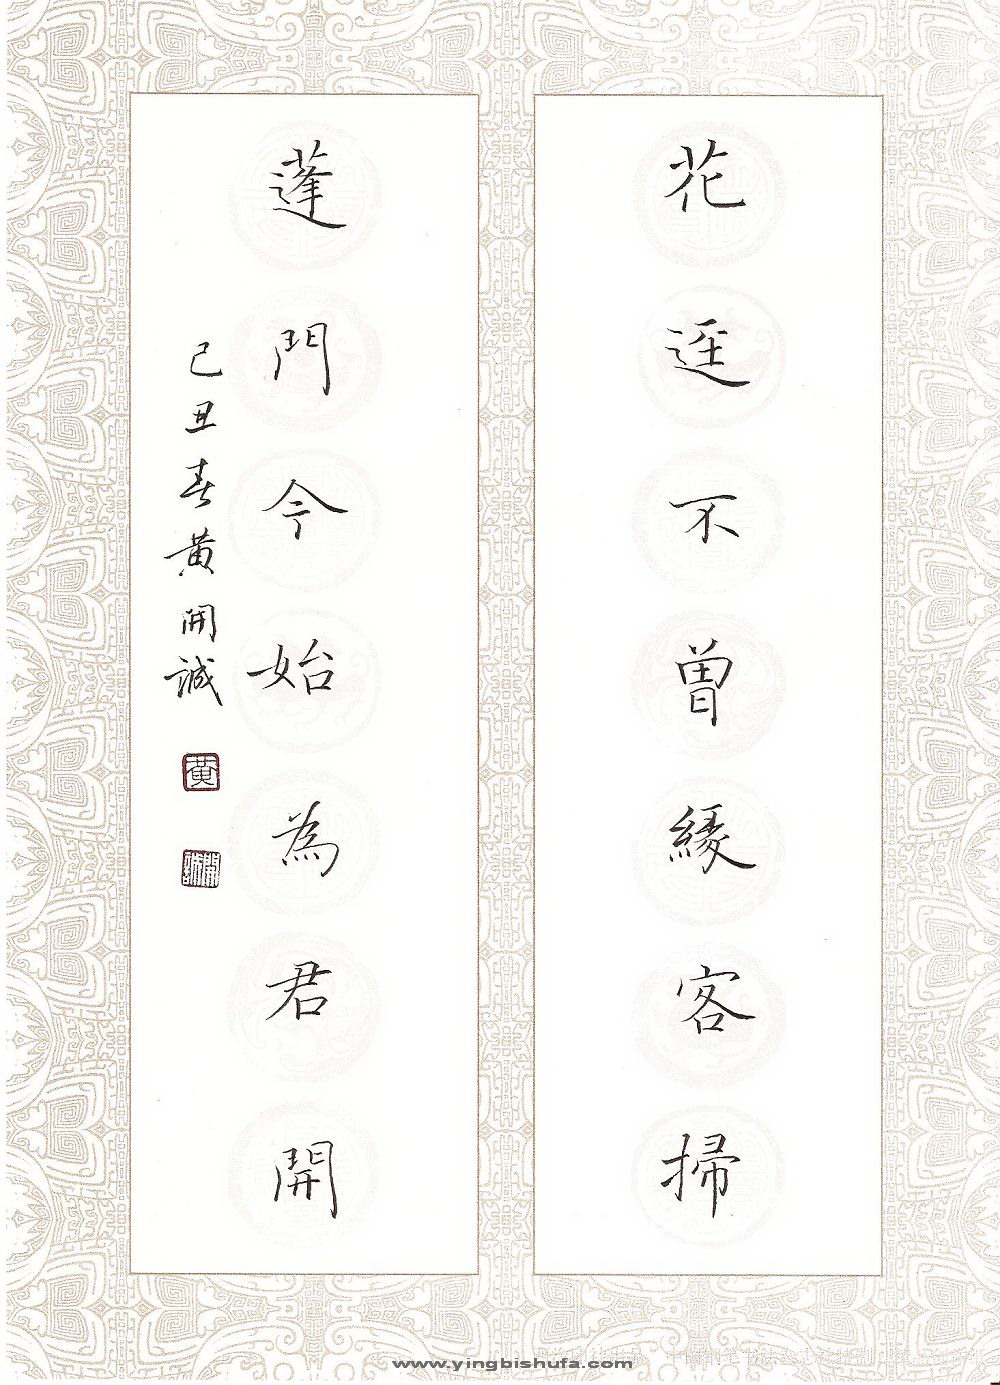 花逕不曾緣客掃
蓬門今始為君開
己丑春黃開誠
黃
開誠
www.yingbishufa.com